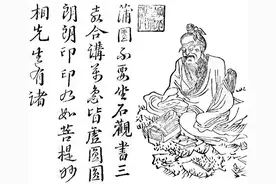 蒲團不要坐石觀書三
合講萬念皆虛圓圓
朗朗印印如如菩提妙
相先生有諸